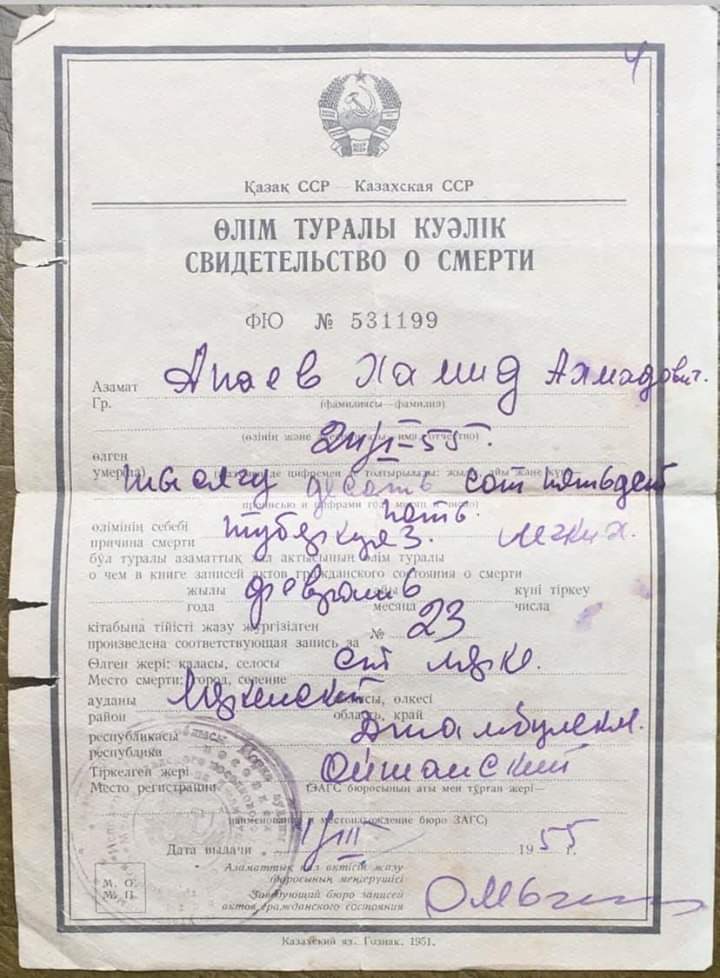 Қазақ ССР — Казахская ССР
ӨЛІМ ТУРАЛЫ КУӘЛІК
СВИДЕТЕЛЬСТВО О СМЕРТИ
ФЮ № 531199
Азамат
Гр. Апаев Хамид Ахмадович.
(фамилиясы—фамилия)
(өзінің және имя, отчество)
өлген
умер(ла) 2/II-55.
тысячу десать сот пятьдет
прописью и цифрами год, месяц и число)
пать.
өлімінің себебі
причина смерти туберкулз. легких.
бұл туралы азаматтық хал актысының өлім туралы
о чем в книге записей актов гражданского состояния о смерти
жылы февраль айы күні тіркеу
года месяца числа
кітабына тиісті жазу жүргізілген
произведена соответствующая запись за № 23
Өлген жері: қаласы, селосы
Место смерти: город, селение ст мерке.
ауданы Меркенский облысы, өлкесі
район область, край
республикасы Джамбулскл.
республика
Тіркелген жері Ойтанский
Место регистрации (ЗАГС бюросының аты мен тұрған жері—
наименование и местонахождение бюро ЗАГС)
Дата выдачи 1/III 1955 г.
М. О.
М. П.
Азаматтық хал актісін жазу
бюросының меңгерушісі
Заведующий бюро записей
актов гражданского состояния
Казахский яз. Гознак. 1951.